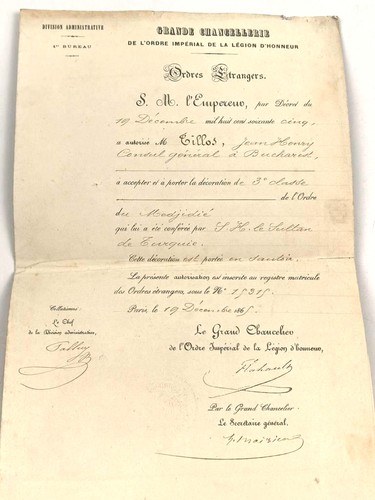 DIVISION ADMINISTRATIVE
1er BUREAU
GRANDE CHANCELLERIE
DE L'ORDRE IMPÉRIAL DE LA LÉGION D'HONNEUR
Ordres Étrangers.
S. M. l'Empereur, par Décret du
19 Décembre mil huit cent soixante cinq
a autorisé M Tillos, Jean Henry
Consul général à Bucharest,
à accepter et à porter la décoration de 3e classe
de l'Ordre
du Medjidié
qui lui a été conférée par S. H. le Sultan
de Turquie.
Cette décoration est portée en sautoir.
La présente autorisation est inscrite au registre matricule
des Ordres étrangers, sous le No 15315.
Paris, le 19 Décembre 1865
Collationné:
Le Chef
de la Division administrative,
Le Grand Chancelier
de l'Ordre Impérial de la Légion d'honneur,
Flahault
Par le Grand Chancelier
Le Secrétaire général,